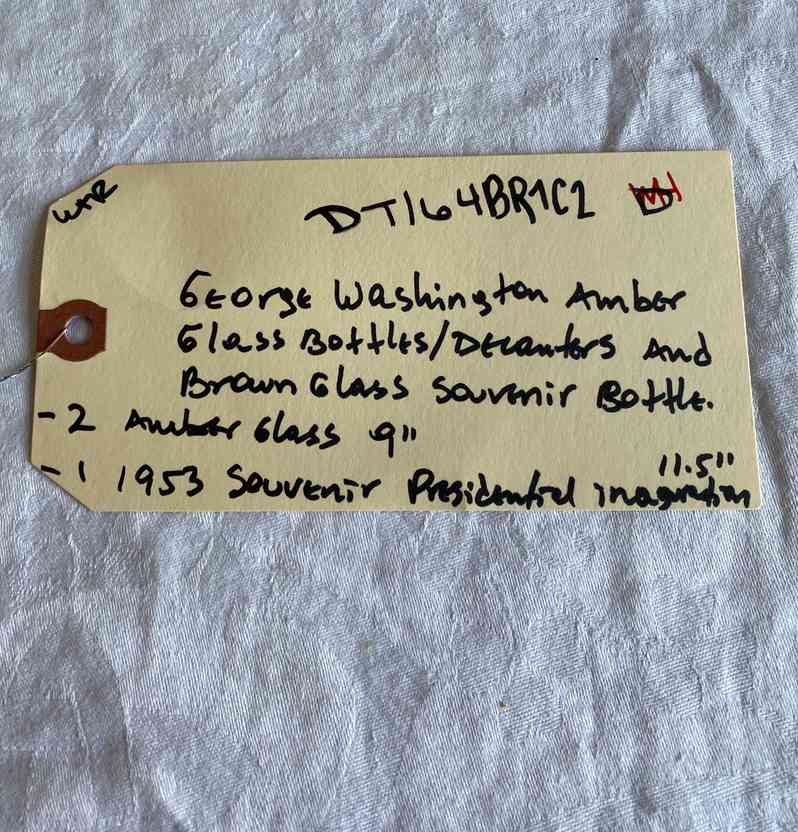 WTR
DT164BR1C2
George Washington Amber
Glass Bottles/Decanters And
Brown Glass Souvenir Bottle.
- 2 Amber Glass 9"
11.5"
- 1 1953 Souvenir Presidential inaguration